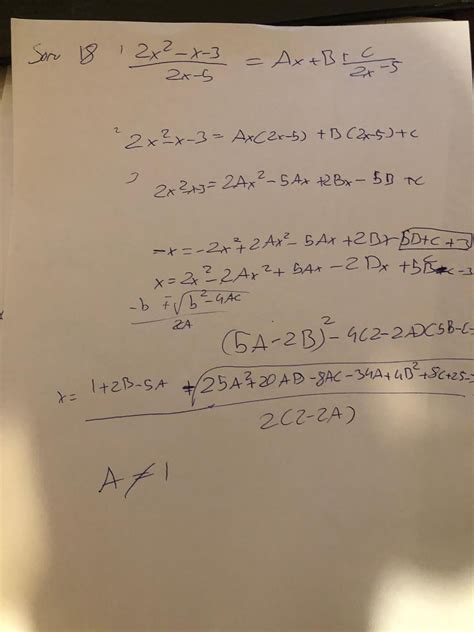 Soru 18 1 (2x²-x-3)/(2x-5) = Ax+B+ C/(2x-5)
2 2x²-x-3 = Ax(2x-5) + B(2x-5)+C
3 2x²+3 = 2Ax² - 5Ax + 2Bx - 5B + C
-x = -2x²+2Ax² - 5Ax + 2Bx - 5B+C+3
x = 2x² - 2Ax² + 5Ax - 2Bx + 5B-C-3
(-b ∓ √(b²-4AC))/2A
(5A-2B)² - 4(2-2A)(5B-C-
x = (1+2B-5A ∓ √(25A²+20AB-8AC-34A+4B²+8C+25-
2(2-2A)
A ≠ 1